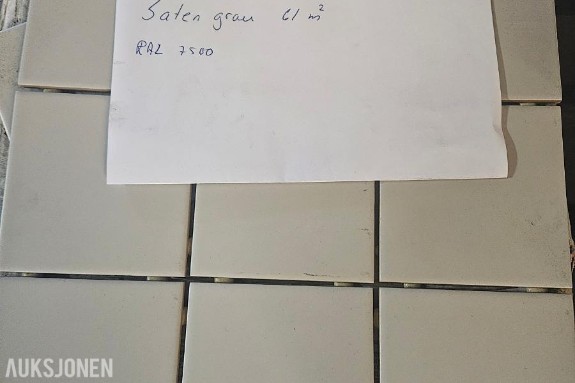 Saten grau 61 m²
RAL 7500
AUKSJONEN